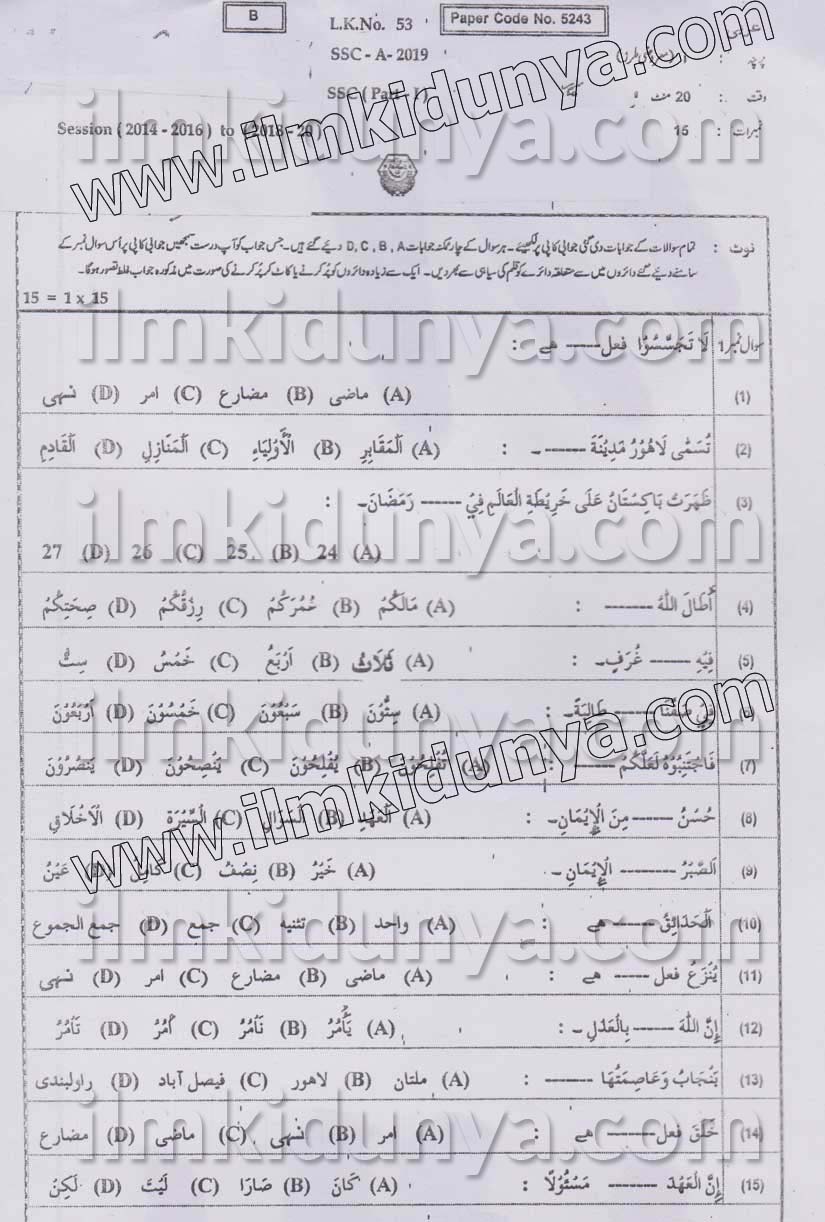 B
L.K.No. 53
Paper Code No. 5243
SSC - A - 2019
SSC ( Part - I )
وقت : 20 منٹ
Session ( 2014 - 2016 ) to ( 2018 - 20 )
نمبرات : 15
www.ilmkidunya.com
ilmkidunya.com
نوٹ : تمام سوالات کے جوابات دی گئی جوابی کاپی پر لکھیئے۔ ہر سوال کے چار ممکنہ جوابات D , C , B , A دیئے گئے ہیں۔ جس جواب کو آپ درست سمجھیں جوابی کاپی پر اُس سوال نمبر کے
سامنے دیئے گئے دائروں میں سے متعلقہ دائرے کو قلم کی سیاہی سے بھر دیں۔ ایک سے زیادہ دائروں کو پُر کرنے یا کاٹ کر پُر کرنے کی صورت میں مذکورہ جواب غلط تصور ہوگا۔
15 = 1 x 15
سوال نمبر 1 لَا تَجَسَّسُوْا فعل ----- ھے :
(1) (A) ماضی (B) مضارع (C) امر (D) نہی
(2) تُسَمّٰی لَاهُوْرُ مَدِيْنَةَ ------ ۔ : (A) اَلْمَقَابِرِ (B) الْأَوْلِيَاءِ (C) اَلْمَنَازِلِ (D) اَلْقَادِمِ
(3) ظَهَرَتْ بَاكِسْتَانُ عَلٰى خَرِيْطَةِ الْعَالَمِ فِيْ ------ رَمَضَانَ۔ :
(A) 24 (B) 25 (C) 26 (D) 27
(4) أَطَالَ اللّٰهُ ------- : (A) مَالَكُمْ (B) عُمُرَكُمْ (C) رِزْقُكُمْ (D) صِحَتِكُمْ
(5) فِيْهِ ------ غُرَفٍ۔ : (A) ثَلَاثُ (B) اَرْبَعُ (C) خَمْسُ (D) سِتُّ
(6) فِيْ صَفِّنَا ------ طَالِبَةً۔ : (A) سِتُّوْنَ (B) سَبْعُوْنَ (C) خَمْسُوْنَ (D) اَرْبَعُوْنَ
(7) فَاجْتَنِبُوْهُ لَعَلَّكُمْ ------ : (A) تُفْلِحُوْنَ (B) يُفْلِحُوْنَ (C) يَنْصِحُوْنَ (D) يَنْصُرُوْنَ
(8) حُسْنُ ------ مِنَ الْإِيْمَانِ۔ : (A) اَلْعَهْدِ (B) اَلسُّؤَالِ (C) اَلسِّيْرَةِ (D) الْاَخْلَاقِ
(9) اَلصَّبْرُ -------- الْإِيْمَانِ۔ (A) خَيْرُ (B) نِصْفُ (C) كَامِلُ (D) عَيْنُ
(10) اَلْحَدَائِقُ ------ ھے : (A) واحد (B) تثنیہ (C) جمع (D) جمع الجموع
(11) يُنْزَعُ فعل ----- ھے : (A) ماضی (B) مضارع (C) امر (D) نہی
(12) إِنَّ اللّٰهَ ------ بِالْعَدْلِ۔ : (A) يَأْمُرُ (B) نَأمُرُ (C) أمُرُ (D) تَأمُرُ
(13) بَنْجَابُ وَعَاصِمَتُهَا ------- : (A) ملتان (B) لاھور (C) فیصل آباد (D) راولپنڈی
(14) خَلَقَ فعل ------- ھے : (A) امر (B) نہی (C) ماضی (D) مضارع
(15) إِنَّ الْعَهْدَ ------- مَسْئُوْلًا : (A) كَانَ (B) صَارَا (C) لَيْتَ (D) لٰكِنْ